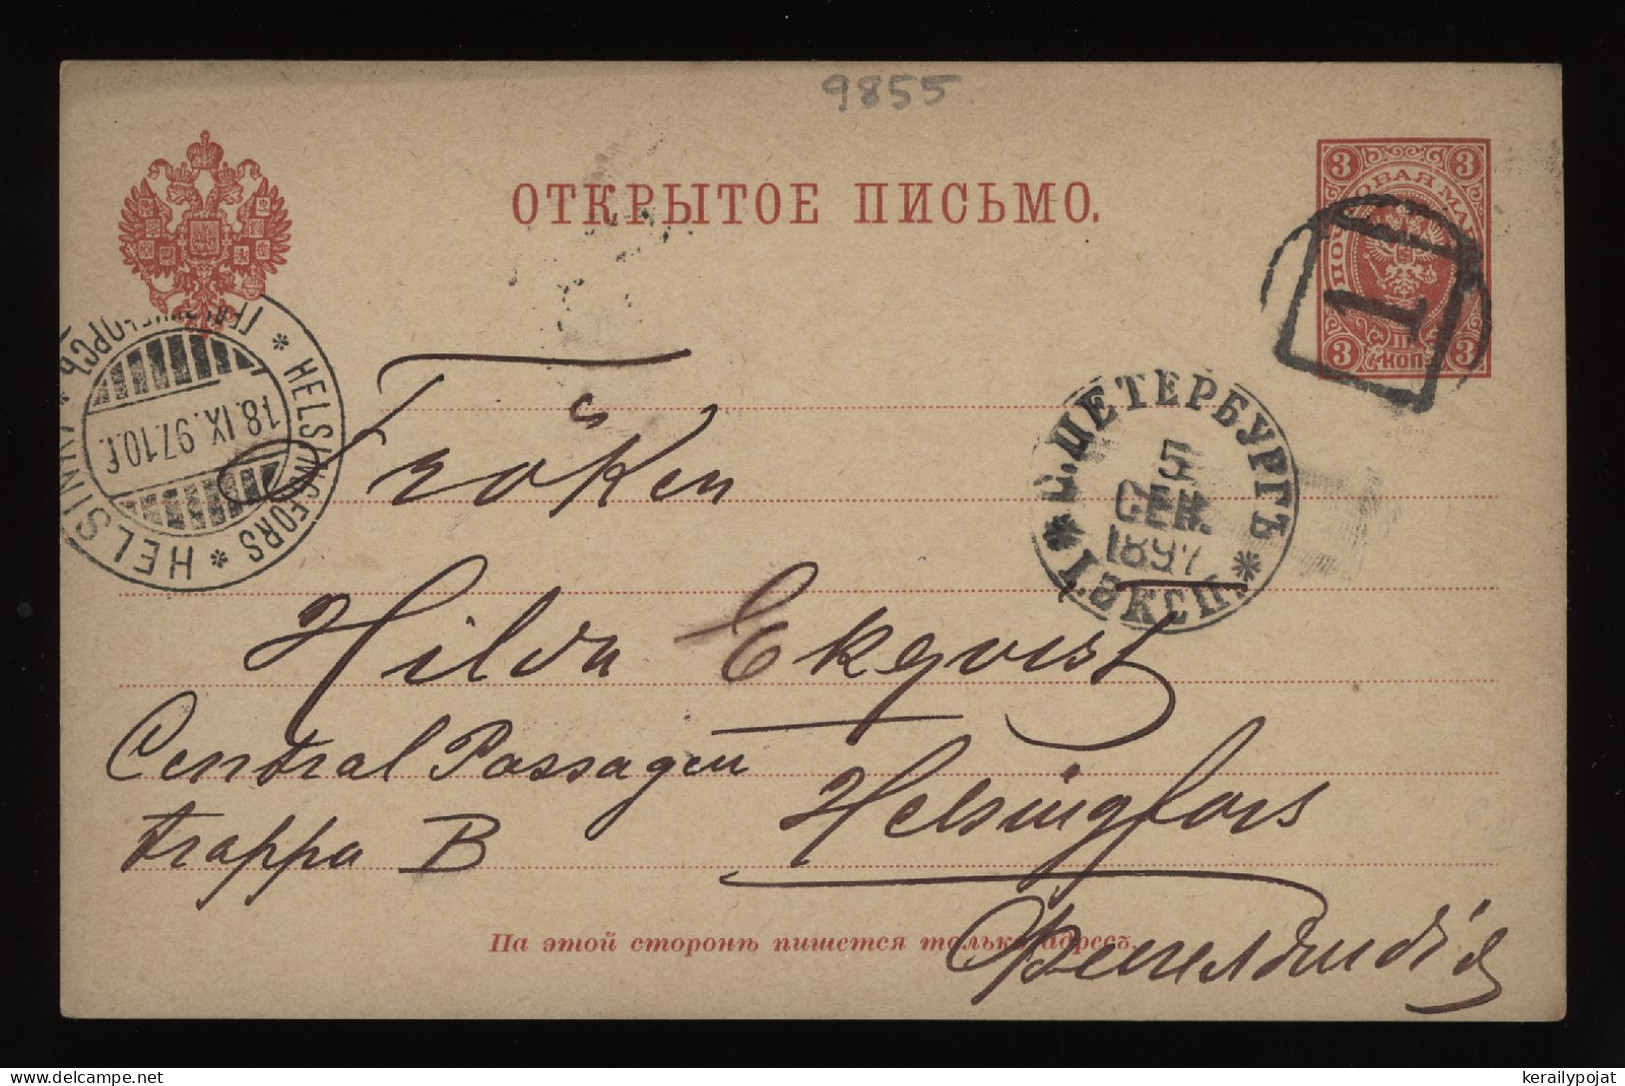 9855
ОТКРЫТОЕ ПИСЬМО.
3 3
ПОЧТОВАЯ МАРКА
3 КОП. 3
1
HELSINGFORS * HELSINKI *
18.IX.97.10 f.
С.ПЕТЕРБУРГЪ
5
СЕН.
1897
* I ЭКСП. *
Fröken
Hilda Ekqvist
Central Passagen
trappa B
Helsingfors
На этой сторонѣ пишется только адресъ.
Финляндія
delcampe.net
kerailypojat